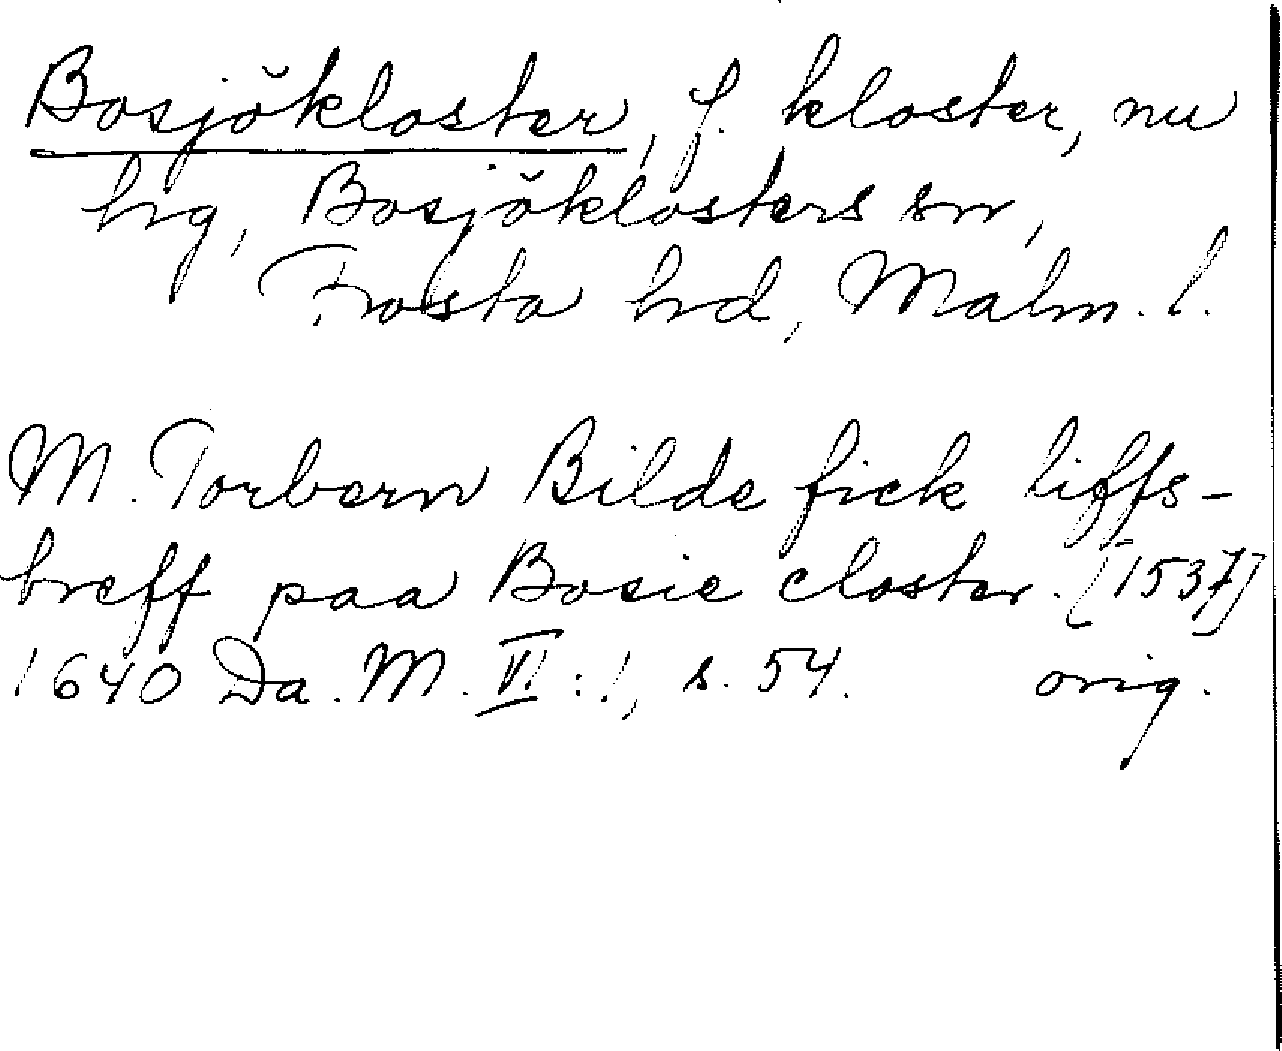 Bosjökloster, f. kloster, nu
hrg, Bosjöklosters sn,
Frosta hrd, Malm. l.
M. Torbern Bilde fick liffs-
breff paa Bosie closter. [1537]
1640 Da. M. VI:1, s. 54. orig.